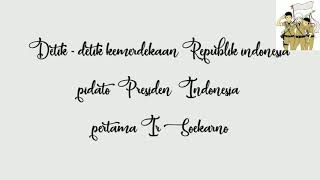 Detik - detik kemerdekaan Republik indonesia
pidato Presiden Indonesia
pertama Ir Soekarno